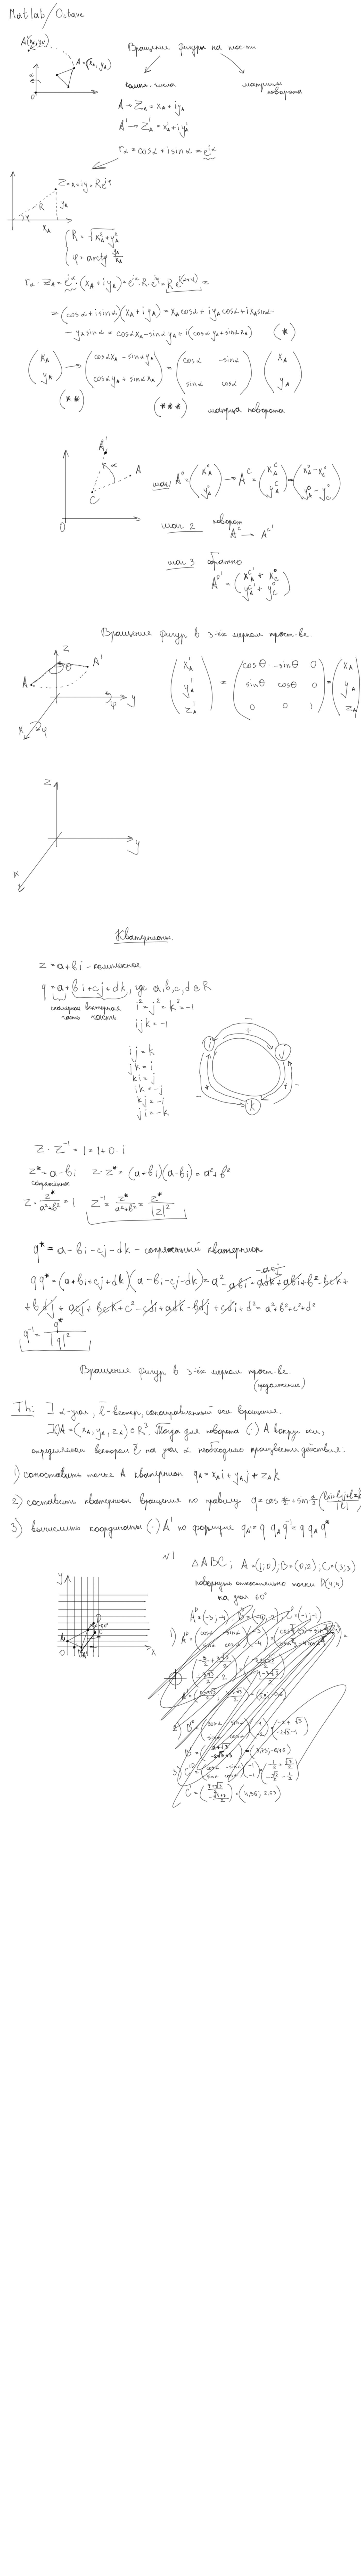 Matlab/Octave
A'(x'A, y'A)
A = (xA, yA)
α
O
Вращение фигуры на плос-ти
компл. числа
матрицы поворота
A → ZA = xA + iyA
A' → Z'A = x'A + iy'A
rα = cosα + isinα = e^iα
Z = x + iy = Re^iφ
R
yA
φ
xA
R = √(x²A + y²A)
φ = arctg yA/xA
rα · ZA = e^iα · (xA + iyA) = e^iα · R · e^iφ = R e^i(α+φ) =
= (cosα + isinα)(xA + iyA) = xA cosα + iyA cosα + ixA sinα -
- yA sinα = cosα xA - sinα yA + i(cosα yA + sinα xA) (*)
(xA yA) → (cosα xA - sinα yA cosα yA + sinα xA) = (cosα -sinα sinα cosα) (xA yA)
(**) (***) матрица поворота
A'
α
A
C
O
шаг 1 A° = (x°A y°A) → A^C = (x^C A y^C A) = (x°A - x°C y°A - y°C)
шаг 2 поворот
A^C → A^C'
шаг 3 обратно
A°' = (x^C'A + x°C y^C'A + y°C)
Вращение фигур в 3-ёх мерном прост-ве.
z
θ
A'
A
y
φ
x
φ
(x'A y'A z'A) = (cosθ -sinθ 0 sinθ cosθ 0 0 0 1) = (xA yA zA)
z
y
x
Кватернионы.
z = a + bi - комплексное
q = a + bi + cj + dk, где a, b, c, d ∈ R
скалярная часть векторная часть
i² = j² = k² = -1
ijk = -1
ij = k
jk = i
ki = j
ik = -j
kj = -i
ji = -k
i
j
k
Z · Z⁻¹ = 1 = 1 + 0 · i
z* = a - bi z · z* = (a + bi)(a - bi) = a² + b²
сопряженное
z · z*/(a²+b²) = 1 z⁻¹ = z*/(a²+b²) = z*/|z|²
q* = a - bi - cj - dk - сопряжённый кватернион
- acj
qq* = (a + bi + cj + dk)(a - bi - cj - dk) = a² - abi - adk + abi + b² - bck +
+ bdj + acj + bck + c² - cdi + adk - bdj + cdi + d² = a² + b² + c² + d²
q⁻¹ = q*/|q|²
Вращение фигур в 3-ёх мерном прост-ве.
(продолжение)
Th: ] α-угол, l̄-вектор, сонаправленный оси вращения.
](·)A = (xA, yA, zA) ∈ R³. Тогда для поворота (·) A вокруг оси,
определяемая вектором l̄ на угол α необходимо произвести действия:
1) сопоставить точке A кватернион qA = xAi + yAj + zAk
2) составить кватернион вращения по правилу q = cos α/2 + sin α/2
3) вычислить координаты (·) A' по формуле qA' = q qA q⁻¹ = q qA q*
№1
ΔABC; A = (1; 0); B = (0; 2); C = (3; 3)
повернуть относительно точки D(4, 4)
на угол 60°
y
x
O
A
D
60°